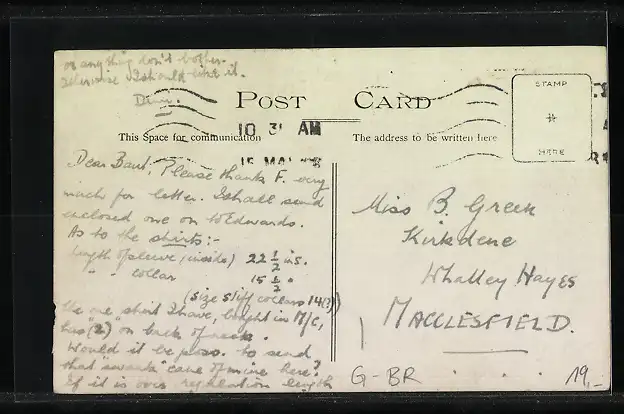 or anything don't bother.
otherwise I should like it.
POST CARD
STAMP
HERE
10 3 AM
This Space for communication
The address to be written here
Dear Please thank F. very
much for letter. I shall send
enclosed one on to Edwards.
As to the shirts:-
Length of sleeve (inside) 22 1/2 ins.
" " collar 15 1/2 "
(Size stiff collars 14(?))
The one shirt I have, bought in M/C,
has (2) on back of neck.
Would it be poss. to send
that "swank" cane of mine here?
If it is over regulation length
Miss B. Green
Kirkdene
Whalley Hayes
MACCLESFIELD.
G-BR
19,-